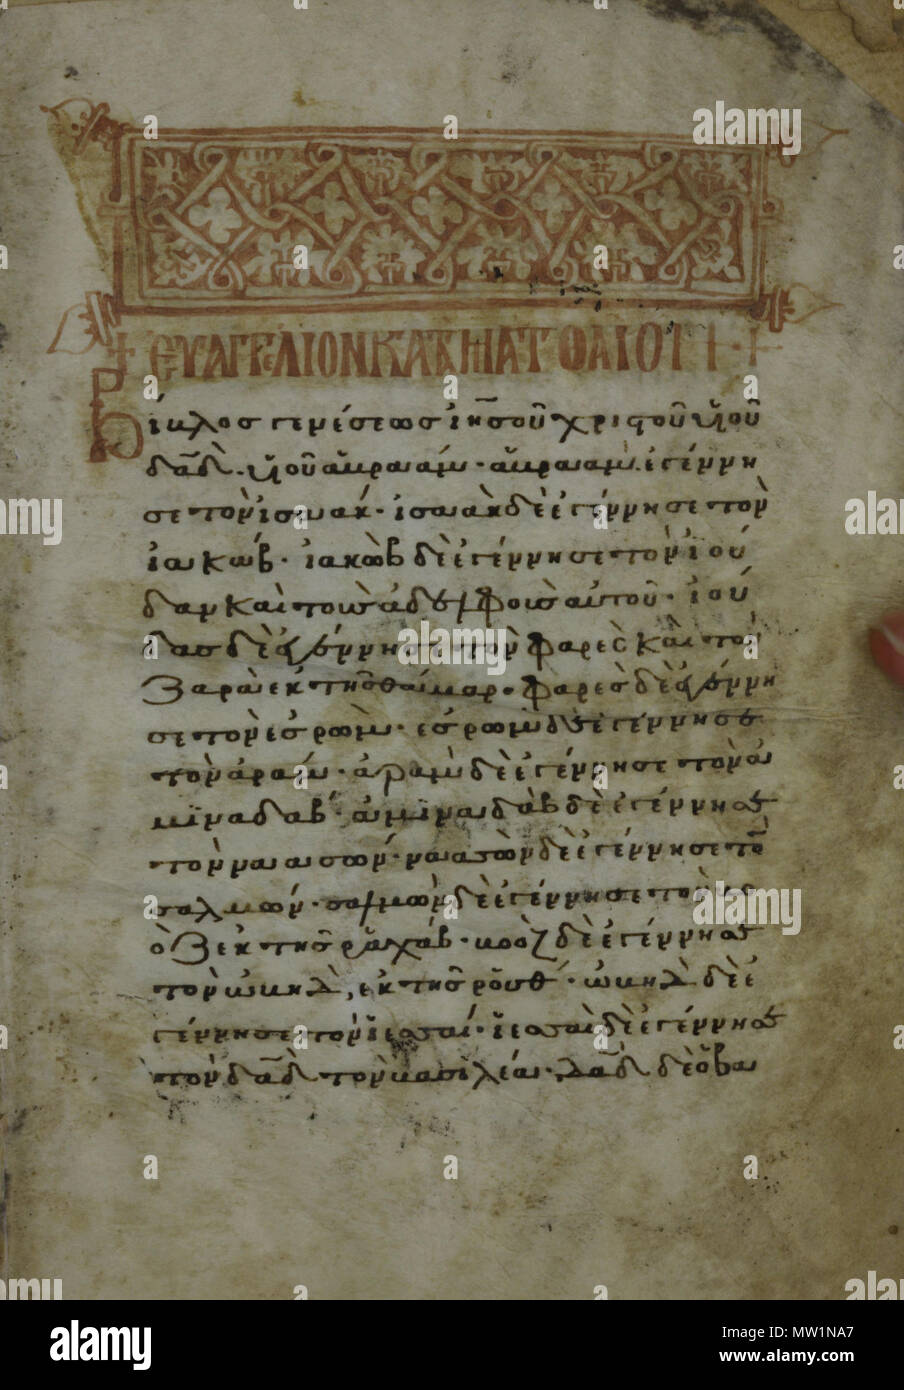 † ΕΥΑΓΓΕΛΙΟΝ ΚΑΤΑ ΜΑΤΘΑΙΟΝ
Βίβλος γενέσεως ἰησοῦ χριστοῦ ὑϊοῦ
δα̅δ̅· ὑϊοῦ ἀβραάμ· ἀβραὰμ ἐγέννη
σε τὸν ἰσαάκ· ἰσαὰκ δὲ ἐγέννησε τὸν
ἰακώβ· ἰακὼβ δὲ ἐγέννησε τὸν ἰού
δαν καὶ τοὺσ ἀδελφοὺσ αὐτοῦ· ἰού
δασ δὲ ἐγέννησε τὸν φαρὲσ καὶ τὸν
ζαρὰ ἐκ τῆσ θάμαρ· φαρὲσ δὲ ἐγέννη
σε τὸν ἐσρώμ· ἐσρὼμ δὲ ἐγέννησε
τὸν ἀράμ· ἀρὰμ δὲ ἐγέννησε τὸν ἀ
μιναδάβ· ἀμιναδὰβ δὲ ἐγέννησε
τὸν ναασών· ναασὼν δὲ ἐγέννησε τὸν
σαλμών· σαλμὼν δὲ ἐγέννησε τὸν β
ὸζ ἐκ τῆσ ῥαχάβ· βοὸζ δὲ ἐγέννησε
τὸν ὠβὴδ, ἐκ τῆσ ῥούθ· ὠβὴδ δὲ ἐ
γέννησε τὸν ἰεσσαί· ἰεσσαὶ δὲ ἐγέννησε
τὸν δα̅δ̅ τὸν βασιλέα· δα̅δ̅ δὲ ὁ βα
alamy
Image ID: MW1NA7
www.alamy.com